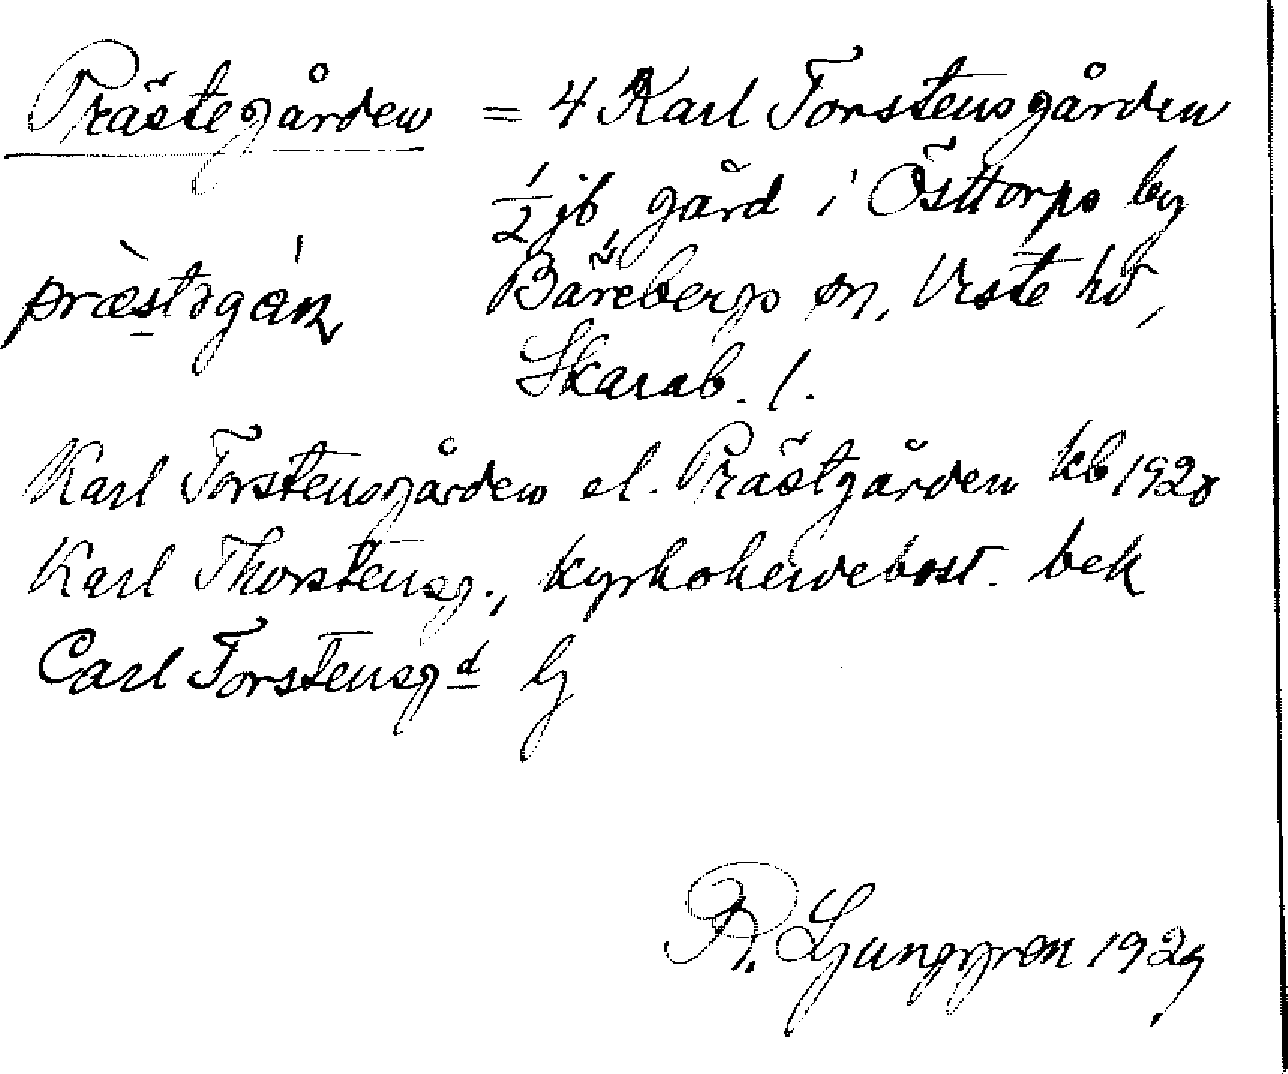 Prästegården = 4 Karl Torstensgården
1/2 jb gård i Östtorps by
præ̀stəgán Bärebergs sn, Viste hd,
Skarab. l.
Karl Torstensgården el. Prästgården kb 1928
Karl Thorstensg., kyrkoherdebost. bek
Carl Torstensgd lj
R. Ljunggren 1929